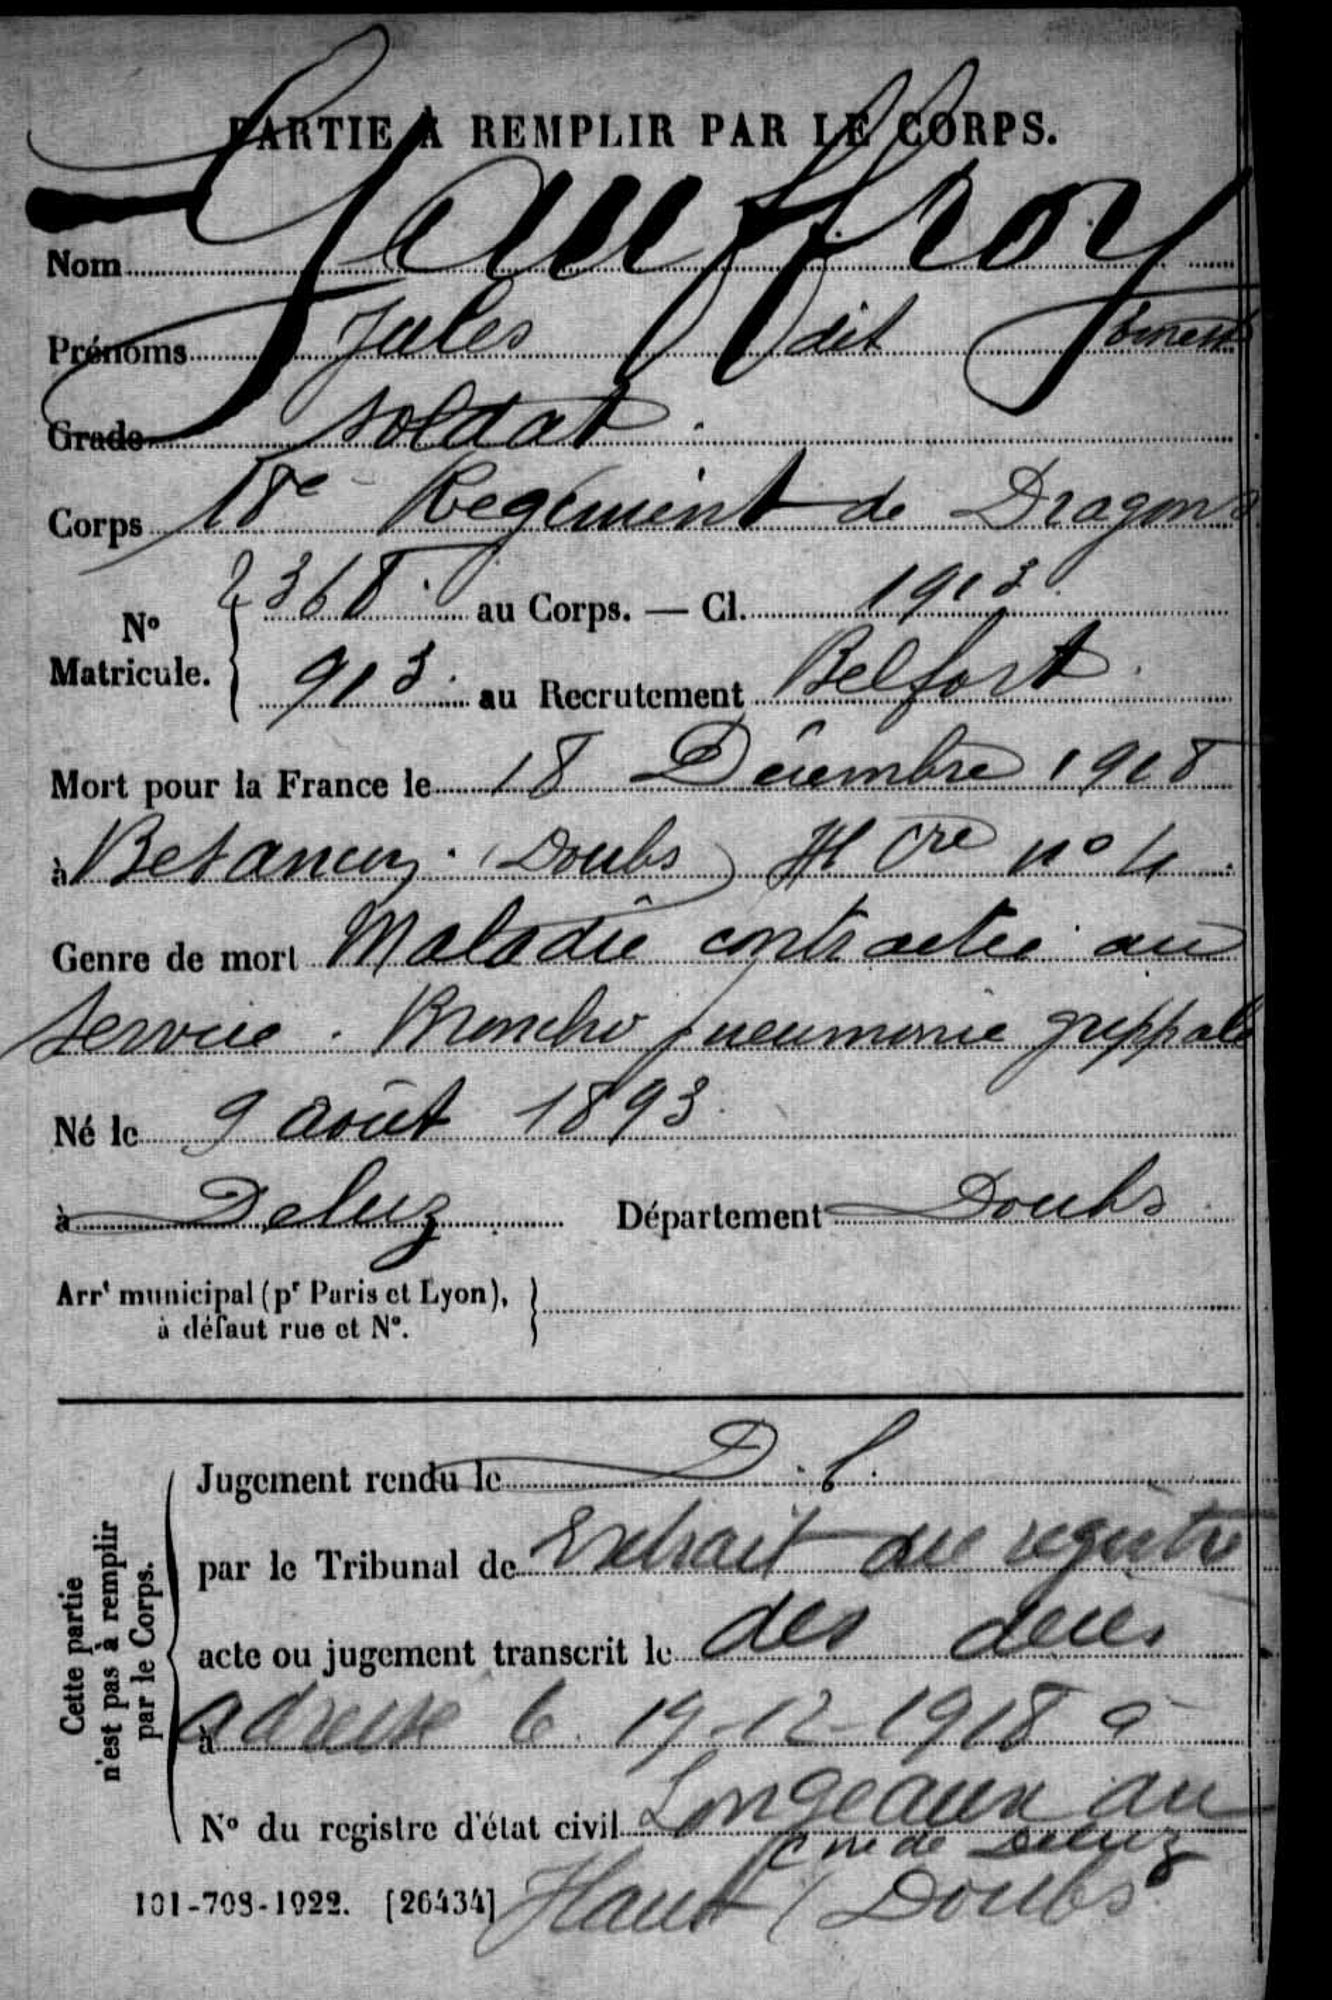 PARTIE A REMPLIR PAR LE CORPS.
Nom Gauffroy
Prénoms Jules dit Ernest
Grade soldat.
Corps 18e Regiment de Dragons
No Matricule. { 2368. au Corps. — Cl. 1913.
913. au Recrutement Belfort.
Mort pour la France le 18 Décembre 1918
à Betancey. (Doubs) H Cre no 4.
Genre de mort Maladie contractée au
service. Broncho pneumonie grippale
Né le 9 août 1893
à Deluz Département Doubs
Arrt municipal (pr Paris et Lyon), à défaut rue et No. }
Cette partie n'est pas à remplir par le Corps.
Jugement rendu le D. C.
par le Tribunal de Extrait du registre
acte ou jugement transcrit le des deces
à adressé le 19-12-1918 à
No du registre d'état civil Longeaux au
Cne de Deluz
Haut (Doubs
101-708-1922. [26434]